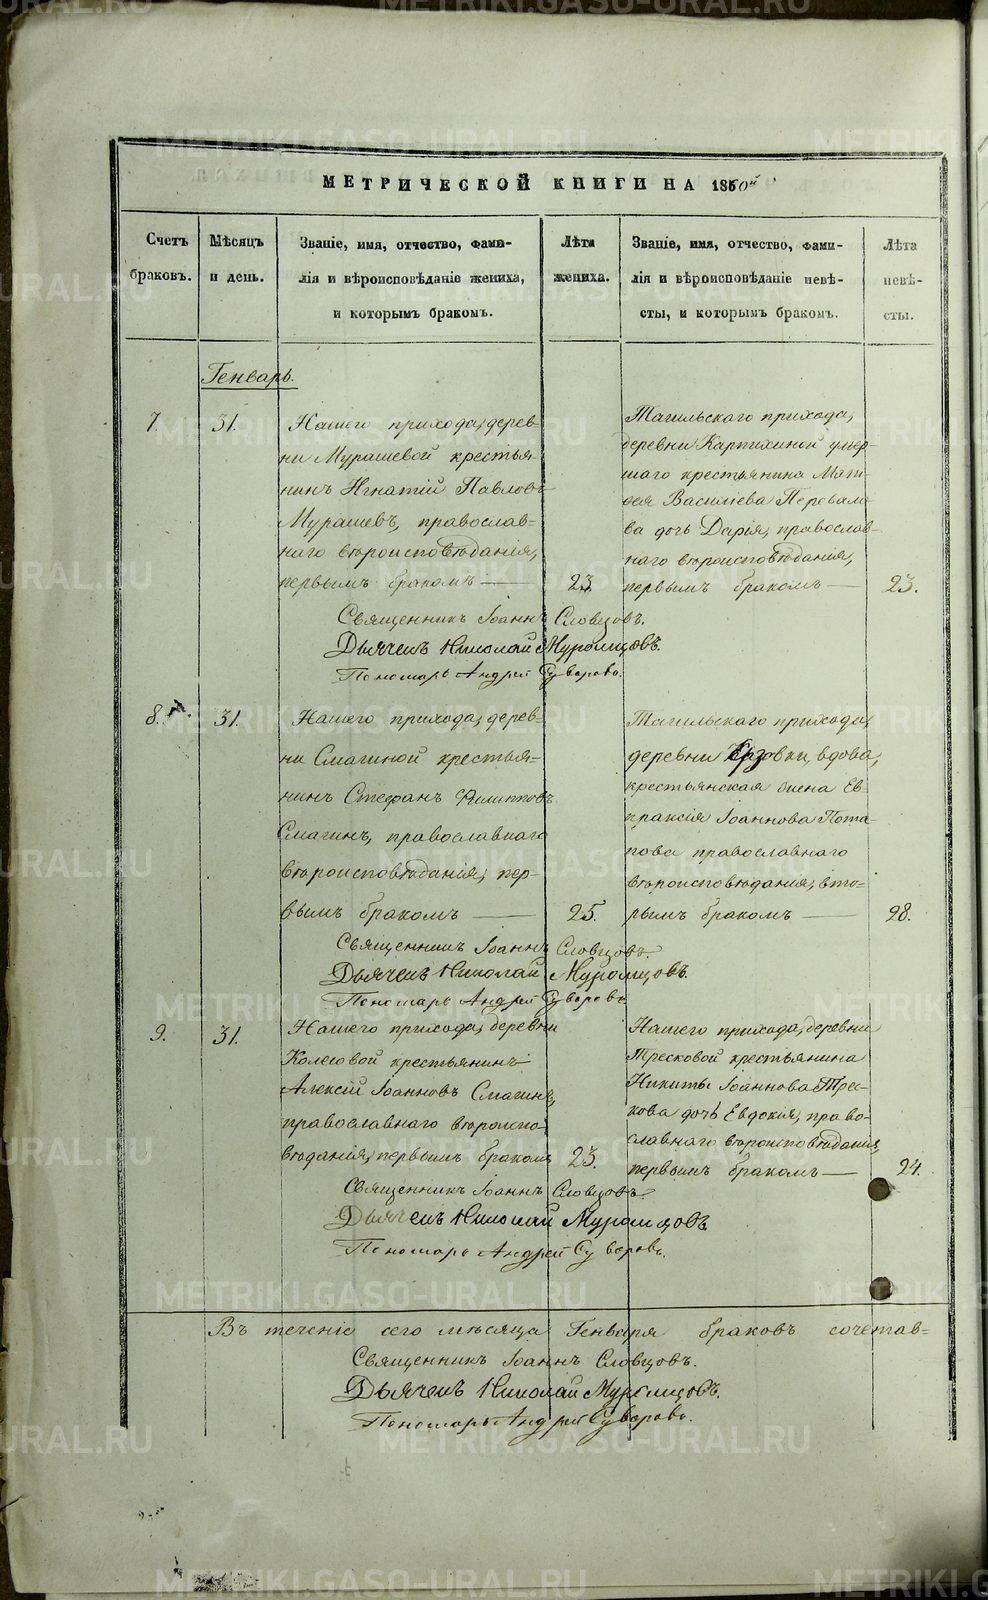 METRIKI.GASO-URAL.RU
МЕТРИЧЕСКОЙ КНИГИ НА 1860й
Счетъ браковъ.
Мѣсяцъ и день.
Званіе, имя, отчество, фами-
лія и вѣроисповѣданіе жениха,
и которымъ бракомъ.
Лѣта жениха.
Званіе, имя, отчество, фами-
лія и вѣроисповѣданіе невѣ-
сты, и которымъ бракомъ.
Лѣта невѣ-
сты.
Генварь.
7. 31.
Нашего прихода, дерев-
ни Мурашевой крестья-
нинъ Игнатій Павловъ
Мурашевъ, православ-
наго вѣроисповѣданія,
первымъ бракомъ — 23.
Тагильскаго прихода,
деревни Карпихиной умер-
шаго крестьянина Мат-
ѳея Василіева Перевало-
ва дочь Дарія, православ-
наго вѣроисповѣданія,
первымъ бракомъ — 23.
Священникъ Іоаннъ Словцовъ.
Дьячекъ Николай Муромцовъ.
Пономарь Андрей Суворовъ.
8. 31.
Нашего прихода, дерев-
ни Смагиной крестья-
нинъ Стефанъ Филипповъ
Смагинъ, православнаго
вѣроисповѣданія, пер-
вымъ бракомъ — 25.
Тагильскаго прихода,
деревни вдова,
крестьянская жена Ев-
праксія Іоаннова Пота-
пова православнаго
вѣроисповѣданія, вто-
рымъ бракомъ — 28.
Священникъ Іоаннъ Словцовъ.
Дьячекъ Николай Муромцовъ.
Пономарь Андрей Суворовъ
9. 31.
Нашего прихода, деревни
Колесовой крестьянинъ
Алексій Іоанновъ Смагинъ,
православнаго вѣроиспо-
вѣданія, первымъ бракомъ 23.
Нашего прихода, деревни
Тресковой крестьянина
Никиты Іоаннова Трес-
кова дочь Евдокія, право-
славнаго вѣроисповѣданія,
первымъ бракомъ — 24.
Священникъ Іоаннъ Словцовъ.
Дьячекъ Николай Муромцовъ
Пономарь Андрей Суворовъ.
Въ теченіе сего мѣсяца Генваря браковъ сочетав-
Священникъ Іоаннъ Словцовъ.
Дьячекъ Николай Муромцовъ.
Пономарь Андрей Суворовъ.